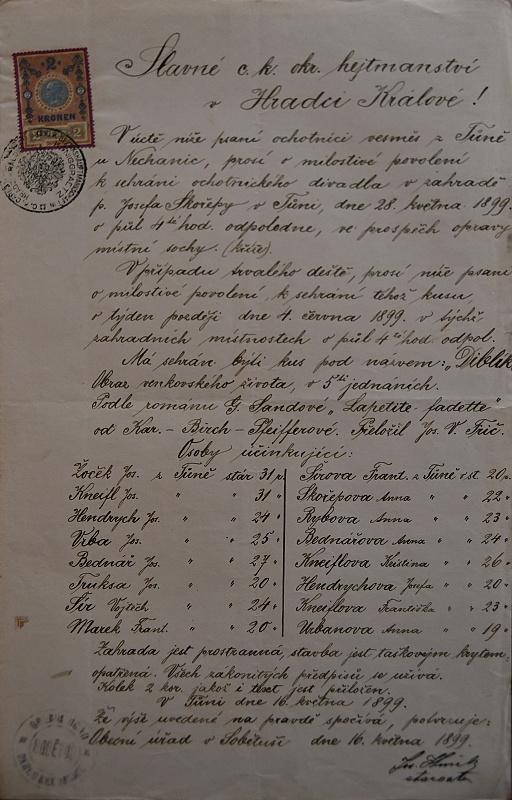 2
KRONEN
2 2
Slavné c. k. okr. hejtmanství
v Hradci Králové!
V úctě níže psaní ochotníci vesměs z Tůně
u Nechanic, prosí o milostivé povolení
k sehrání ochotnického divadla v zahradě
p. Josefa Skořepy v Tůni, dne 28. května 1899.
o půl 4té hod. odpoledne, ve prospěch opravy
místní sochy. (kříže).
V případu trvalého deště, prosí níže psaní
o milostivé povolení, k sehrání téhož kusu,
o týden později dne 4. června 1899. v týchž
zahradních místnostech o půl 4té hod. odpol.
Má sehrán býti kus pod názvem: „Diblík"
Obraz venkovského života, v 5ti jednáních.
Podle románu G. Sandové „Lapetite fadette"
od Kar. – Birch – Pfeifferové. Přeložil Jos. V. Frič.
Osoby účinkující:
Žoček Jos. z Tůně stár 31 r. Šírova Frant. z Tůně st. 20 r.
Kneifl Jos. " " 31 " Skořepova Anna " " 22 "
Hendrych Jos. " " 24 " Rybova Anna " " 23 "
Vrba Jos. " " 25 " Bednářova Anna " " 24 "
Bednář Jos. " " 27 " Kneiflova Kristina " " 26 "
Truksa Jos. " " 20 " Hendrychova Josefa " " 20 "
Šír Vojtěch " " 24 " Kneiflova Františka " " 23 "
Marek Frant. " " 20 " Urbanova Anna " " 19 "
Zahrada jest prostranná, stavba jest taškovým krytem
opatřená. Všech zákonitých předpisů se užívá.
Kolek 2 kor. jakož i text jest přiložen.
V Tůni dne 16. května 1899.
Že výše uvedené na pravdě spočívá, potvrzuje:
Obecní úřad v Sobětuši dne 16. května 1899.
starosta